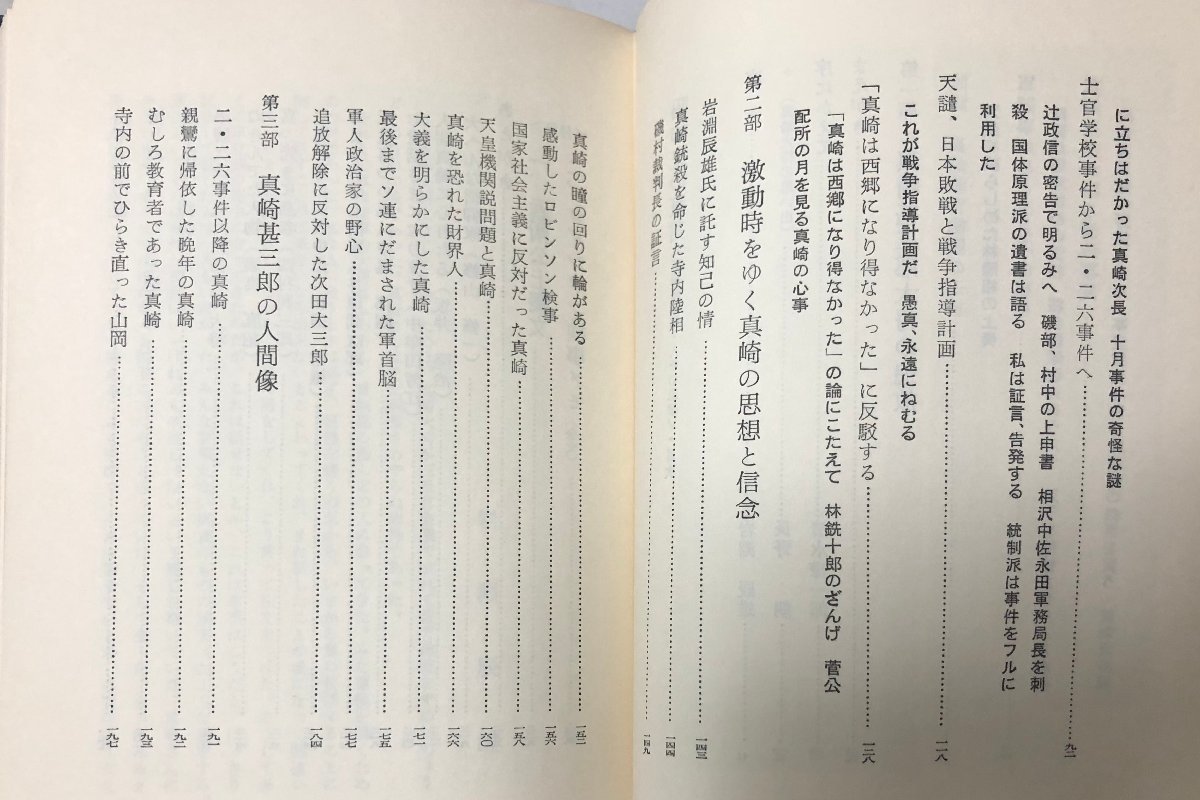 に立ちはだかった真崎次長　十月事件の奇怪な謎
士官学校事件から二・二六事件へ……………………九二
辻政信の密告で明るみへ　磯部、村中の上申書　相沢中佐永田軍務局長を刺
殺　国体原理派の遺書は語る　私は証言、告発する　統制派は事件をフルに
利用した
天譴、日本敗戦と戦争指導計画……………………一一八
これが戦争指導計画だ　愚真、永遠にねむる
「真崎は西郷になり得なかった」に反駁する……………………一二八
「真崎は西郷になり得なかった」の論にこたえて　林銑十郎のざんげ　菅公
配所の月を見る真崎の心事
第二部　激動時をゆく真崎の思想と信念
岩淵辰雄氏に託す知己の情……………………一四三
真崎銃殺を命じた寺内陸相……………………一四四
磯村裁判長の証言……………………一四九
真崎の瞳の回りに輪がある……………………一五二
感動したロビンソン検事……………………一五六
国家社会主義に反対だった真崎……………………一五八
天皇機関説問題と真崎……………………一六〇
真崎を恐れた財界人……………………一六六
大義を明らかにした真崎……………………一七一
最後までソ連にだまされた軍首脳……………………一七五
軍人政治家の野心……………………一七七
追放解除に反対した次田大三郎……………………一八四
第三部　真崎甚三郎の人間像
二・二六事件以降の真崎……………………一九一
親鸞に帰依した晩年の真崎……………………一九二
むしろ教育者であった真崎……………………一九三
寺内の前でひらき直った山岡……………………一九七